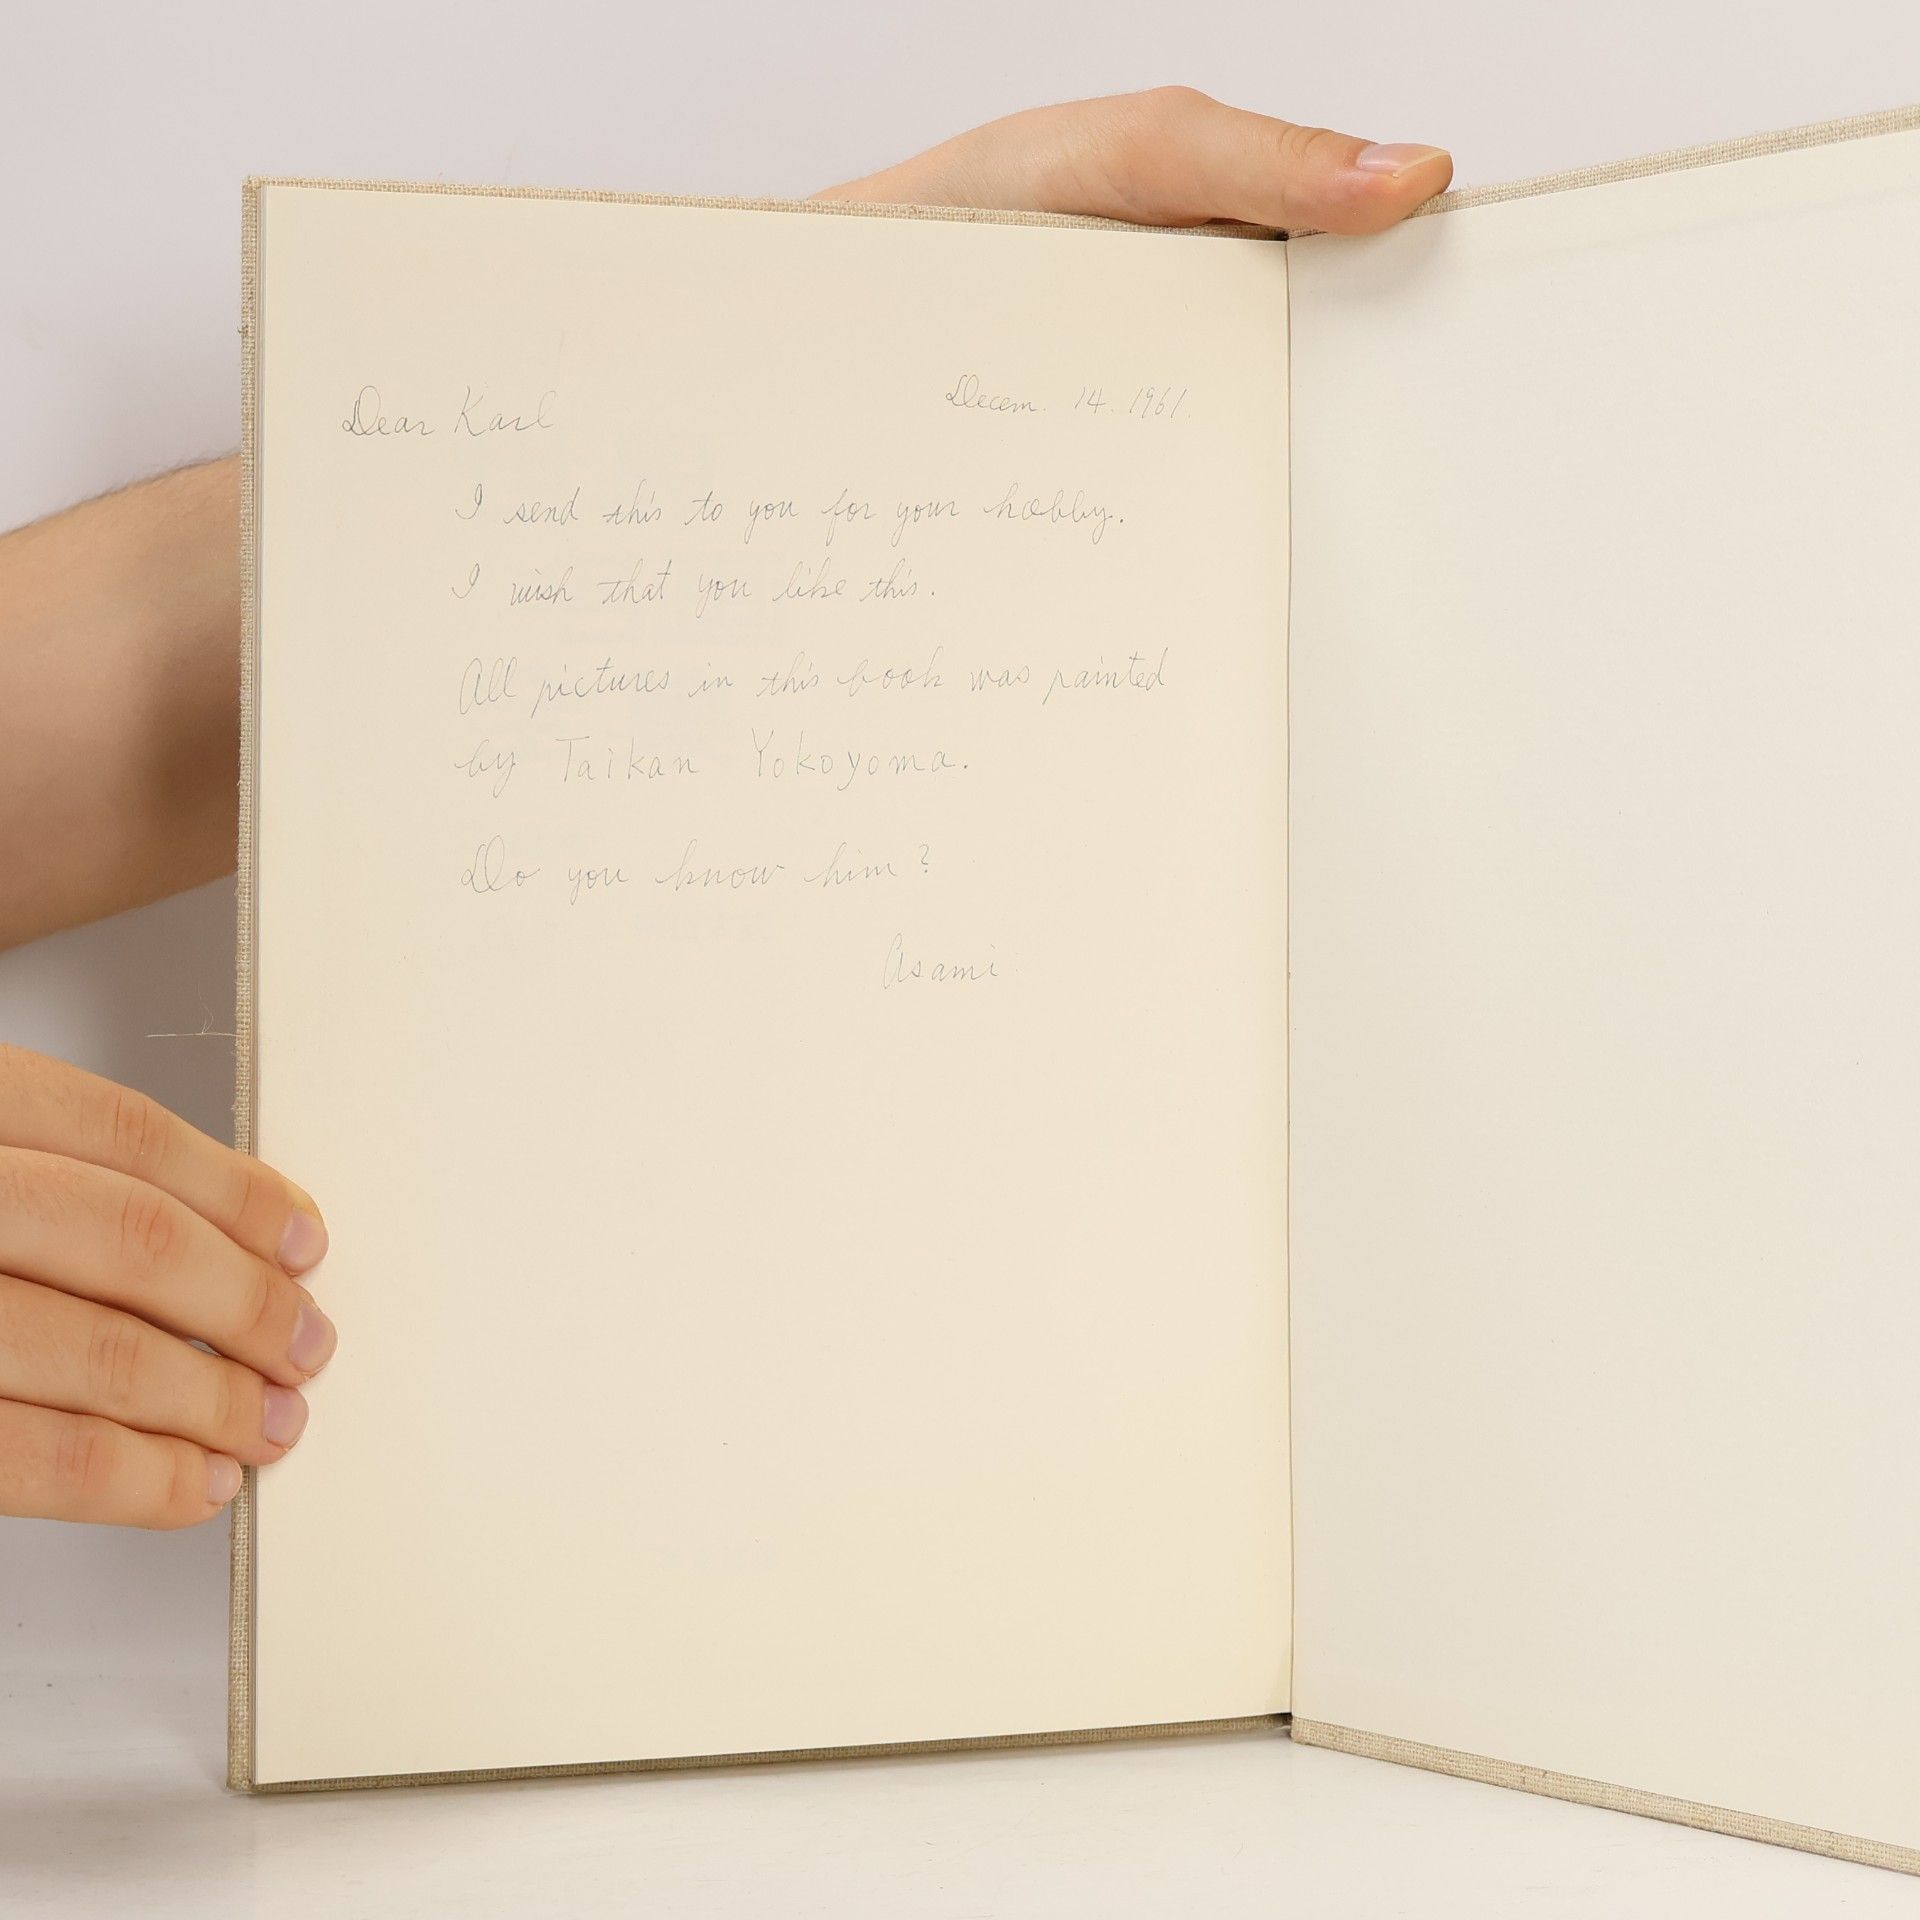 Decem. 14. 1961.
Dear Karl
I send this to you for your hobby.
I wish that you like this.
All pictures in this book was painted
by Taikan Yokoyoma.
Do you know him?
Asami